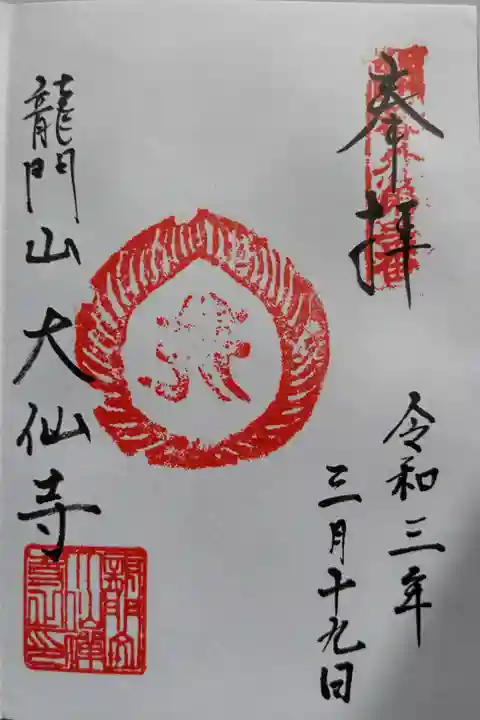 奉拝
令和三年
三月十九日
龍門山 大仙寺